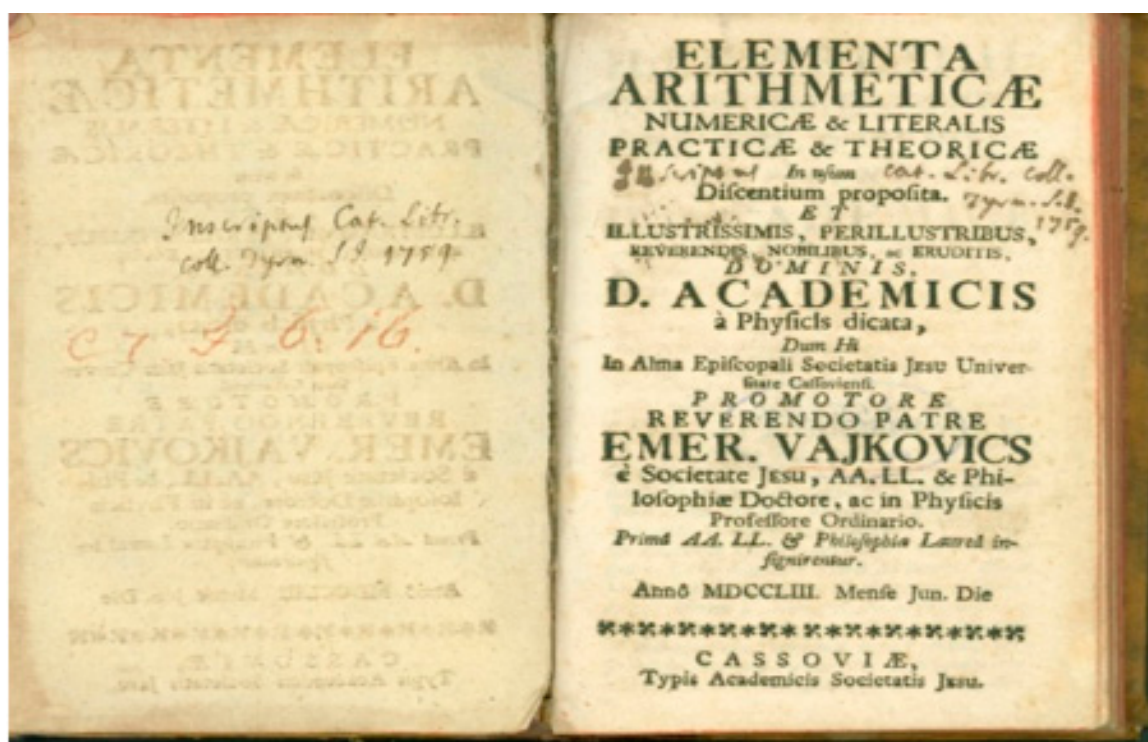 Inscriptus Cat. Libr.
coll. Tyrn. S.J. 1759.
C 7 F 6. 16.
ELEMENTA
ARITHMETICÆ
NUMERICÆ & LITERALIS
PRACTICÆ & THEORICÆ
In usum
Inscriptus Cat. Libr. Coll.
Discentium proposita.
Tyrn. S.J.
1759.
ET
ILLUSTRISSIMIS, PERILLUSTRIBUS,
REVERENDIS, NOBILIBUS, ac ERUDITIS,
DOMINIS,
D. ACADEMICIS
à Physicis dicata,
Dum Hi
In Alma Episcopali Societatis JESU Univer-
sitate Cassoviensi.
PROMOTORE
REVERENDO PATRE
EMER. VAJKOVICS
è Societate JESU, AA. LL. & Phi-
losophiæ Doctore, ac in Physicis
Professore Ordinario.
Primâ AA. LL. & Philosophiæ Laureâ in-
signirentur.
Annô MDCCLIII. Mense Jun. Die
CASSOVIÆ,
Typis Academicis Societatis JESU.